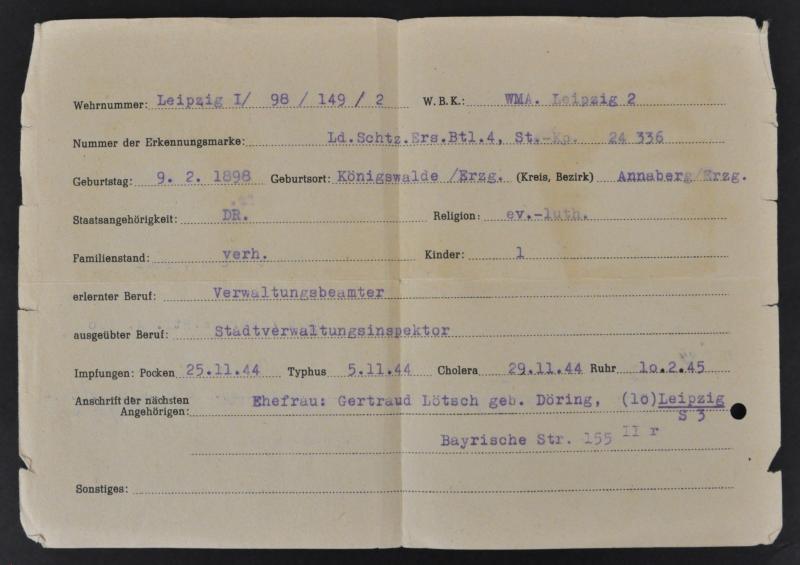 Wehrnummer: Leipzig I/ 98 / 149 / 2 W.B.K.: WMA. Leipzig 2
Nummer der Erkennungsmarke: Ld.Schtz.Ers.Btl.4, St.-Kp. 24 336
Geburtstag: 9. 2. 1898 Geburtsort: Königswalde /Erzg. (Kreis, Bezirk) Annaberg/Erzg.
Staatsangehörigkeit: DR. Religion: ev.-luth.
Familienstand: verh. Kinder: 1
erlernter Beruf: Verwaltungsbeamter
ausgeübter Beruf: Stadtverwaltungsinspektor
Impfungen: Pocken 25.11.44 Typhus 5.11.44 Cholera 29.11.44 Ruhr 1o.2.45
Anschrift der nächsten
Angehörigen: Ehefrau: Gertraud Lötsch geb. Döring, (1o)Leipzig
S 3
Bayrische Str. 155 II r
Sonstiges: